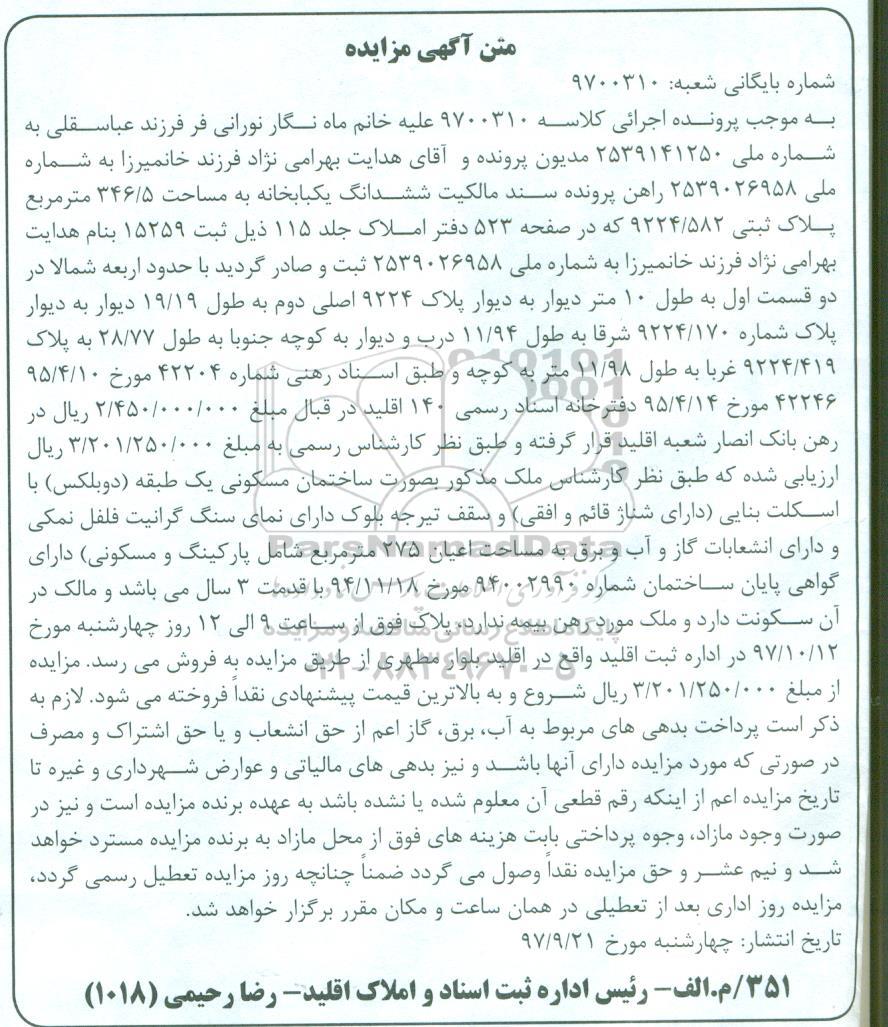 متن آگهی مزایده
شماره بایگانی شعبه: ۹۷۰۰۳۱۰
به موجب پرونده اجرائی کلاسه ۹۷۰۰۳۱۰ علیه خانم ماه نگار نورانی فر فرزند عباسقلی به
شماره ملی ۲۵۳۹۱۴۱۲۵۰ مدیون پرونده و آقای هدایت بهرامی نژاد فرزند خانمیرزا به شماره
ملی ۲۵۳۹۰۲۶۹۵۸ راهن پرونده سند مالکیت ششدانگ یکبابخانه به مساحت ۳۴۶/۵ مترمربع
پلاک ثبتی ۹۲۲۴/۵۸۲ که در صفحه ۵۲۳ دفتر املاک جلد ۱۱۵ ذیل ثبت ۱۵۲۵۹ بنام هدایت
بهرامی نژاد فرزند خانمیرزا به شماره ملی ۲۵۳۹۰۲۶۹۵۸ ثبت و صادر گردید با حدود اربعه شمالا در
دو قسمت اول به طول ۱۰ متر دیوار به دیوار پلاک ۹۲۲۴ اصلی دوم به طول ۱۹/۱۹ دیوار به دیوار
پلاک شماره ۹۲۲۴/۱۷۰ شرقا به طول ۱۱/۹۴ درب و دیوار به کوچه جنوبا به طول ۲۸/۷۷ به پلاک
۹۲۲۴/۴۱۹ غربا به طول ۱۱/۹۸ متر به کوچه و طبق اسناد رهنی شماره ۴۲۲۰۴ مورخ ۹۵/۴/۱۰
۴۲۲۴۶ مورخ ۹۵/۴/۱۴ دفترخانه اسناد رسمی ۱۴۰ اقلید در قبال مبلغ ۲/۴۵۰/۰۰۰/۰۰۰ ریال در
رهن بانک انصار شعبه اقلید قرار گرفته و طبق نظر کارشناس رسمی به مبلغ ۳/۲۰۱/۲۵۰/۰۰۰ ریال
ارزیابی شده که طبق نظر کارشناس ملک مذکور بصورت ساختمان مسکونی یک طبقه (دوبلکس) با
اسکلت بنایی (دارای شناژ قائم و افقی) و سقف تیرجه بلوک دارای نمای سنگ گرانیت فلفل نمکی
و دارای انشعابات گاز و آب و برق به مساحت اعیان ۲۷۵ مترمربع شامل پارکینگ و مسکونی) دارای
گواهی پایان ساختمان شماره ۹۴۰۰۲۹۹۰ مورخ ۹۴/۱۱/۱۸ با قدمت ۳ سال می باشد و مالک در
آن سکونت دارد و ملک مورد رهن بیمه ندارد، پلاک فوق از ساعت ۹ الی ۱۲ روز چهارشنبه مورخ
۹۷/۱۰/۱۲ در اداره ثبت اقلید واقع در اقلید بلوار مطهری از طریق مزایده به فروش می رسد. مزایده
از مبلغ ۳/۲۰۱/۲۵۰/۰۰۰ ریال شروع و به بالاترین قیمت پیشنهادی نقداً فروخته می شود. لازم به
ذکر است پرداخت بدهی های مربوط به آب، برق، گاز اعم از حق انشعاب و یا حق اشتراک و مصرف
در صورتی که مورد مزایده دارای آنها باشد و نیز بدهی های مالیاتی و عوارض شهرداری و غیره تا
تاریخ مزایده اعم از اینکه رقم قطعی آن معلوم شده یا نشده باشد به عهده برنده مزایده است و نیز در
صورت وجود مازاد، وجوه پرداختی بابت هزینه های فوق از محل مازاد به برنده مزایده مسترد خواهد
شد و نیم عشر و حق مزایده نقداً وصول می گردد ضمناً چنانچه روز مزایده تعطیل رسمی گردد،
مزایده روز اداری بعد از تعطیلی در همان ساعت و مکان مقرر برگزار خواهد شد.
تاریخ انتشار: چهارشنبه مورخ ۹۷/۹/۲۱
۳۵۱/م.الف- رئیس اداره ثبت اسناد و املاک اقلید- رضا رحیمی (۱۰۱۸)
ParsNamadData
پایگاه اطلاع رسانی مناقصه و مزایده
۰۲۱-۸۸۳۴۹۶۷۰-۵